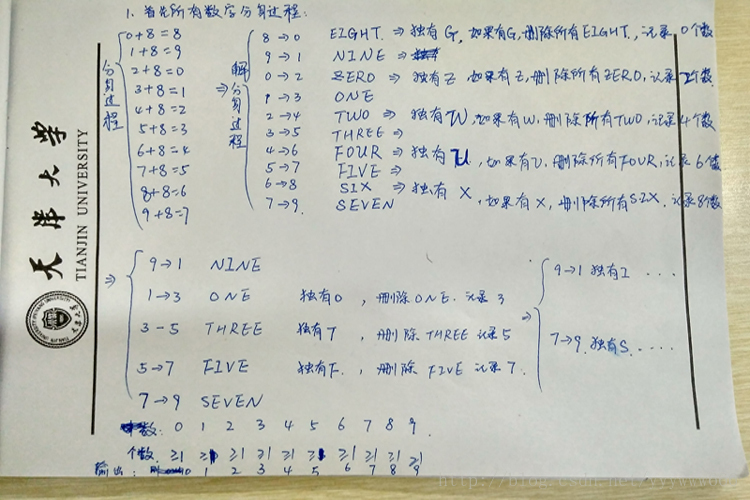 1. 首先所有数字分身过程:
分身过程
0+8=8
1+8=9
2+8=0
3+8=1
4+8=2
5+8=3
6+8=4
7+8=5
8+8=6
9+8=7
⇒
解分身过程
8→0 EIGHT ⇒ 独有G, 如果有G, 删除所有EIGHT, 记录0个数
9→1 NINE ⇒
0→2 ZERO ⇒ 独有Z 如果有Z, 删除所有ZERO, 记录2个数
1→3 ONE
2→4 TWO ⇒ 独有W, 如果有W, 删除所有TWO, 记录4个数
3→5 THREE ⇒
4→6 FOUR ⇒ 独有U, 如果有U, 删除所有FOUR, 记录6个数
5→7 FIVE ⇒
6→8 SIX ⇒ 独有X, 如果有X, 删除所有SIX. 记录8个数
7→9. SEVEN
⇒
9→1 NINE
1→3 ONE 独有O, 删除ONE. 记录3
3-5 THREE 独有T, 删除THREE 记录5
5→7 FIVE 独有F. 删除FIVE 记录7.
7→9 SEVEN
⇒
9→1 独有I ....
7→9. 独有S.....
数: 0 1 2 3 4 5 6 7 8 9
个数. ≥1 ≥1 ≥1 ≥1 ≥1 ≥1 ≥1 ≥1 ≥1 ≥1
输出: 0 1 2 3 4 5 6 7 8 9
天津大学
TIANJIN UNIVERSITY